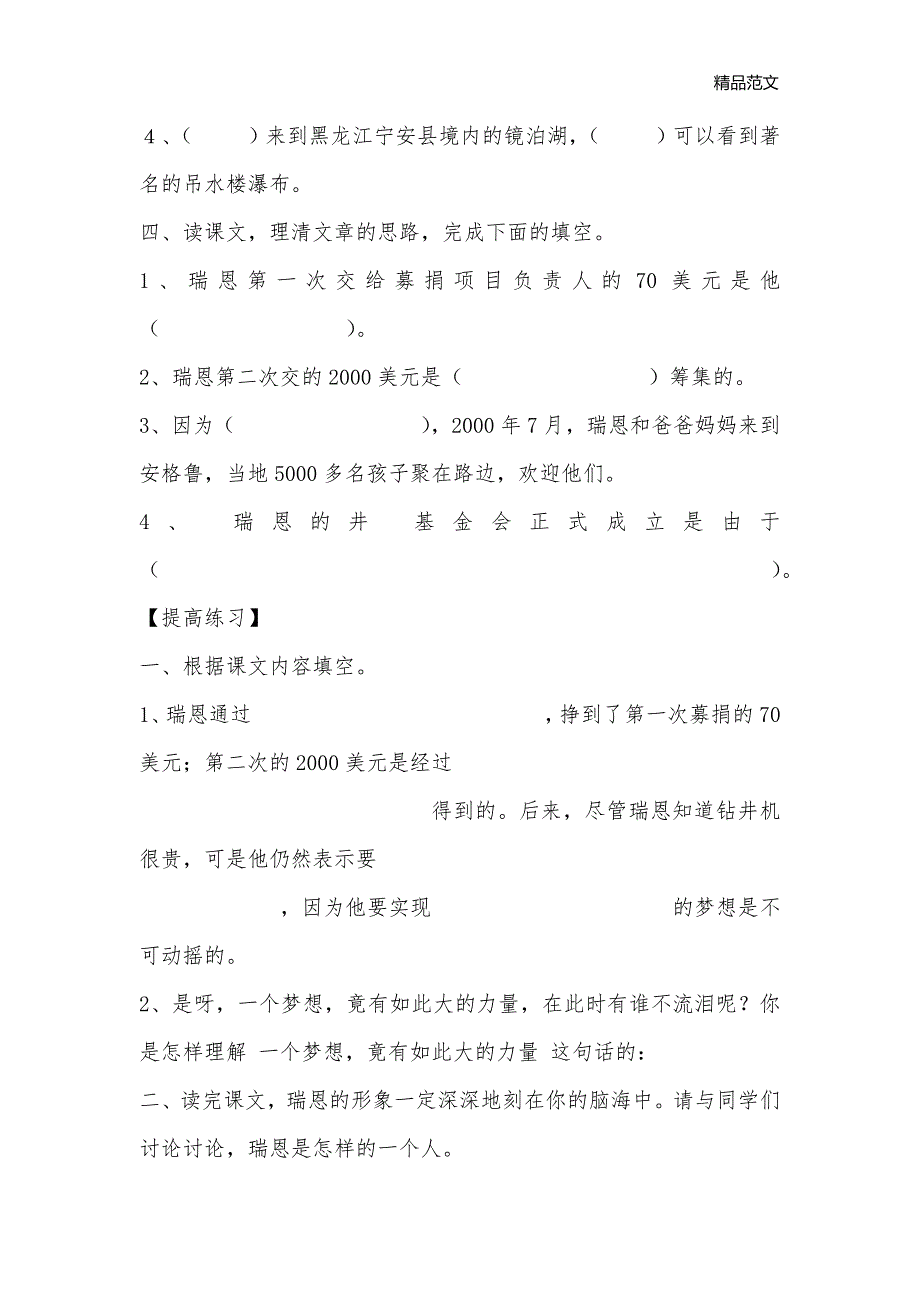 精品范文
４、（　　）来到黑龙江宁安县境内的镜泊湖，（　　）可以看到著
名的吊水楼瀑布。
四、读课文，理清文章的思路，完成下面的填空。
1、瑞恩第一次交给募捐项目负责人的 70 美元是他
（　　　　　　　　）。
2、瑞恩第二次交的 2000 美元是（　　　　　　　　）筹集的。
3、因为（　　　　　　　　），2000 年 7 月，瑞恩和爸爸妈妈来到
安格鲁，当地 5000 多名孩子聚在路边，欢迎他们。
4、 瑞恩的井 基金会正式成立是由于
（　　　　　　　　　　　　　　　　　　　　　　　　　　　　）。
【提高练习】
一、根据课文内容填空。
1、瑞恩通过　　　　　　　　　　　　　，挣到了第一次募捐的 70
美元；第二次的 2000 美元是经过
得到的。后来，尽管瑞恩知道钻井机
很贵，可是他仍然表示要
，因为他要实现　　　　　　　　　　　的梦想是不
可动摇的。
2、是呀，一个梦想，竟有如此大的力量，在此时有谁不流泪呢？你
是怎样理解 一个梦想，竟有如此大的力量 这句话的：
二、读完课文，瑞恩的形象一定深深地刻在你的脑海中。请与同学们
讨论讨论，瑞恩是怎样的一个人。